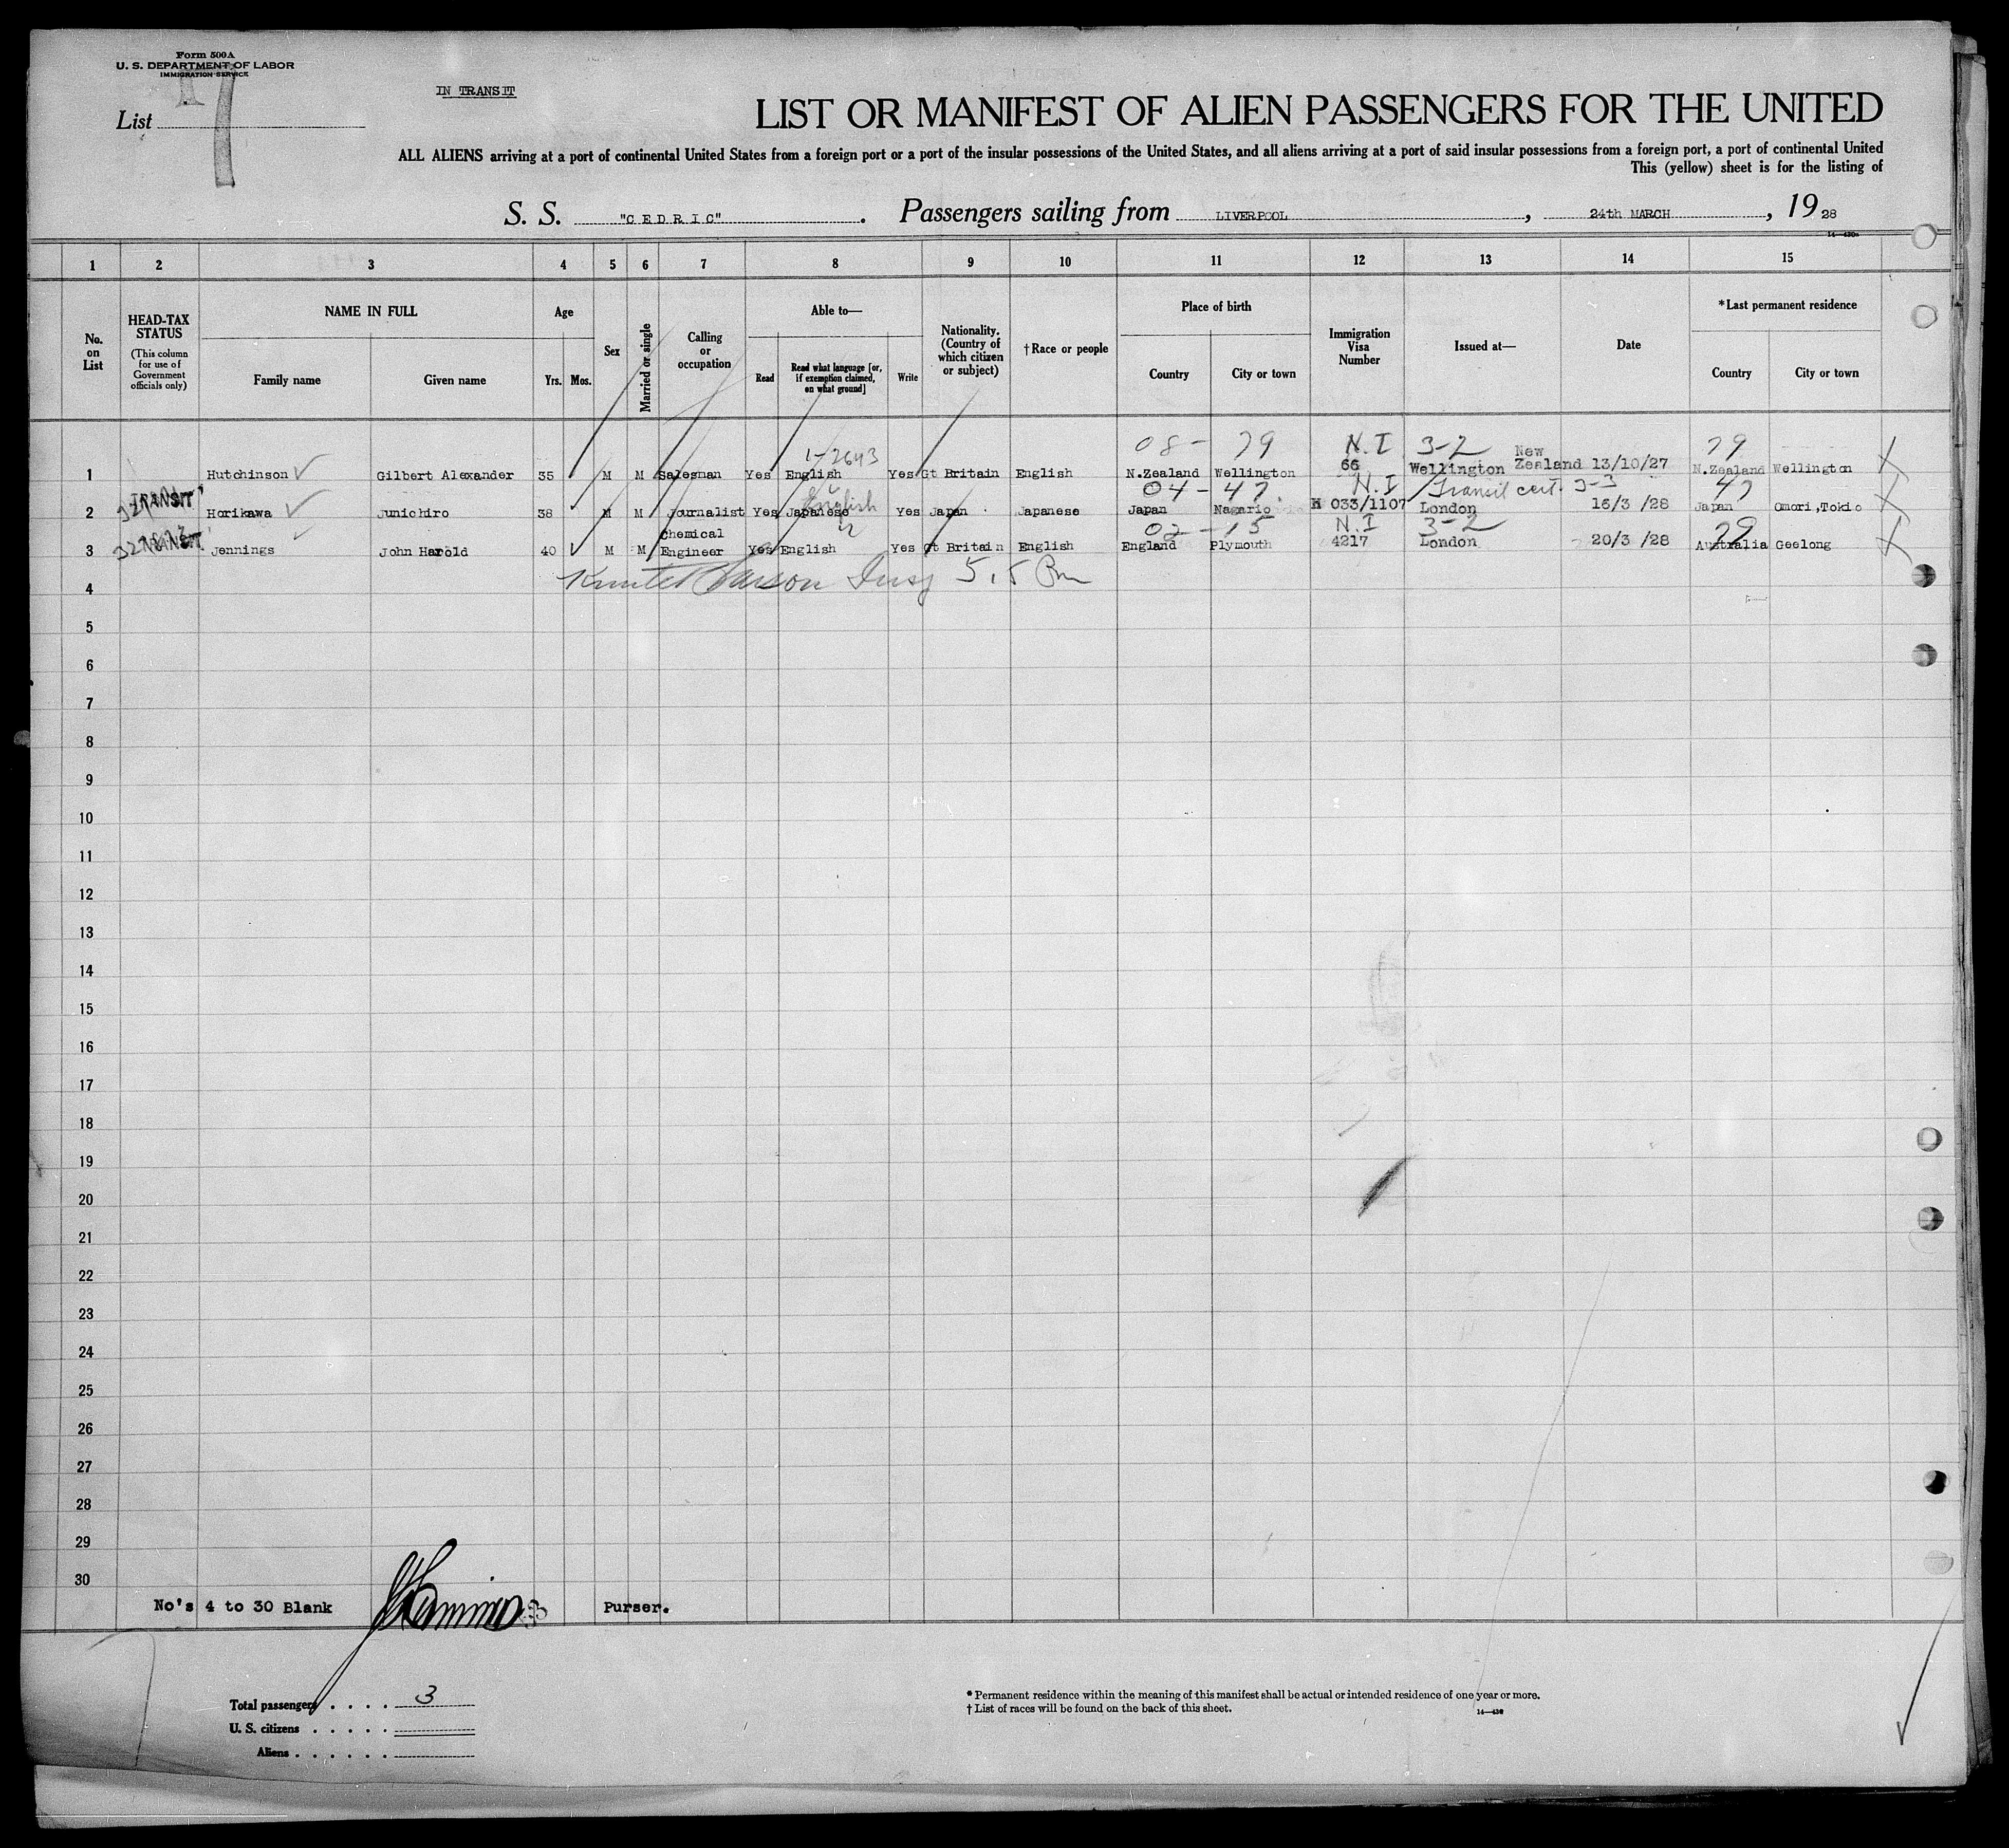 Form 500A
U. S. DEPARTMENT OF LABOR
IMMIGRATION SERVICE
IN TRANSIT
List 7
LIST OR MANIFEST OF ALIEN PASSENGERS FOR THE UNITED
ALL ALIENS arriving at a port of continental United States from a foreign port or a port of the insular possessions of the United States, and all aliens arriving at a port of said insular possessions from a foreign port, a port of continental United
This (yellow) sheet is for the listing of
S. S. "CEDRIC". Passengers sailing from LIVERPOOL, 24th MARCH, 1928
1 2 3 4 5 6 7 8 9 10 11 12 13 14 15
No. on List
HEAD-TAX STATUS (This column for use of Government officials only)
NAME IN FULL
Family name Given name
Age
Yrs. Mos.
Sex
Married or single
Calling or occupation
Able to—
Read Read what language [or, if exemption claimed, on what ground] Write
Nationality. (Country of which citizen or subject)
†Race or people
Place of birth
Country City or town
Immigration Visa Number
Issued at—
Date
*Last permanent residence
Country City or town
1-2643 08- 79 N.I 3-2 79
1 Hutchinson Gilbert Alexander 35 M M Salesman Yes English Yes Gt Britain English N.Zealand Wellington 66 Wellington New Zealand 13/10/27 N.Zealand Wellington
English 04-47 N.I Transit cert. 3-3 47
2 TRANSIT Horikawa Junichiro 38 M M Journalist Yes Japanese Yes Japan Japanese Japan Nagario 033/1107 London 16/3 /28 Japan Omori,Tokio
02-15 N.I 3-2 79
3 TRANSIT Jennings John Harold 40 M M Chemical Engineer Yes English Yes Gt Britain English England Plymouth 4217 London 20/3 /28 Australia Geelong
4 Larson Insp 5.5 Pm
5
6
7
8
9
10
11
12
13
14
15
16
17
18
19
20
21
22
23
24
25
26
27
28
29
30
No's 4 to 30 Blank Purser.
Total passengers . . . . 3
U. S. citizens . . . . .
Aliens . . . . . .
* Permanent residence within the meaning of this manifest shall be actual or intended residence of one year or more.
† List of races will be found on the back of this sheet.